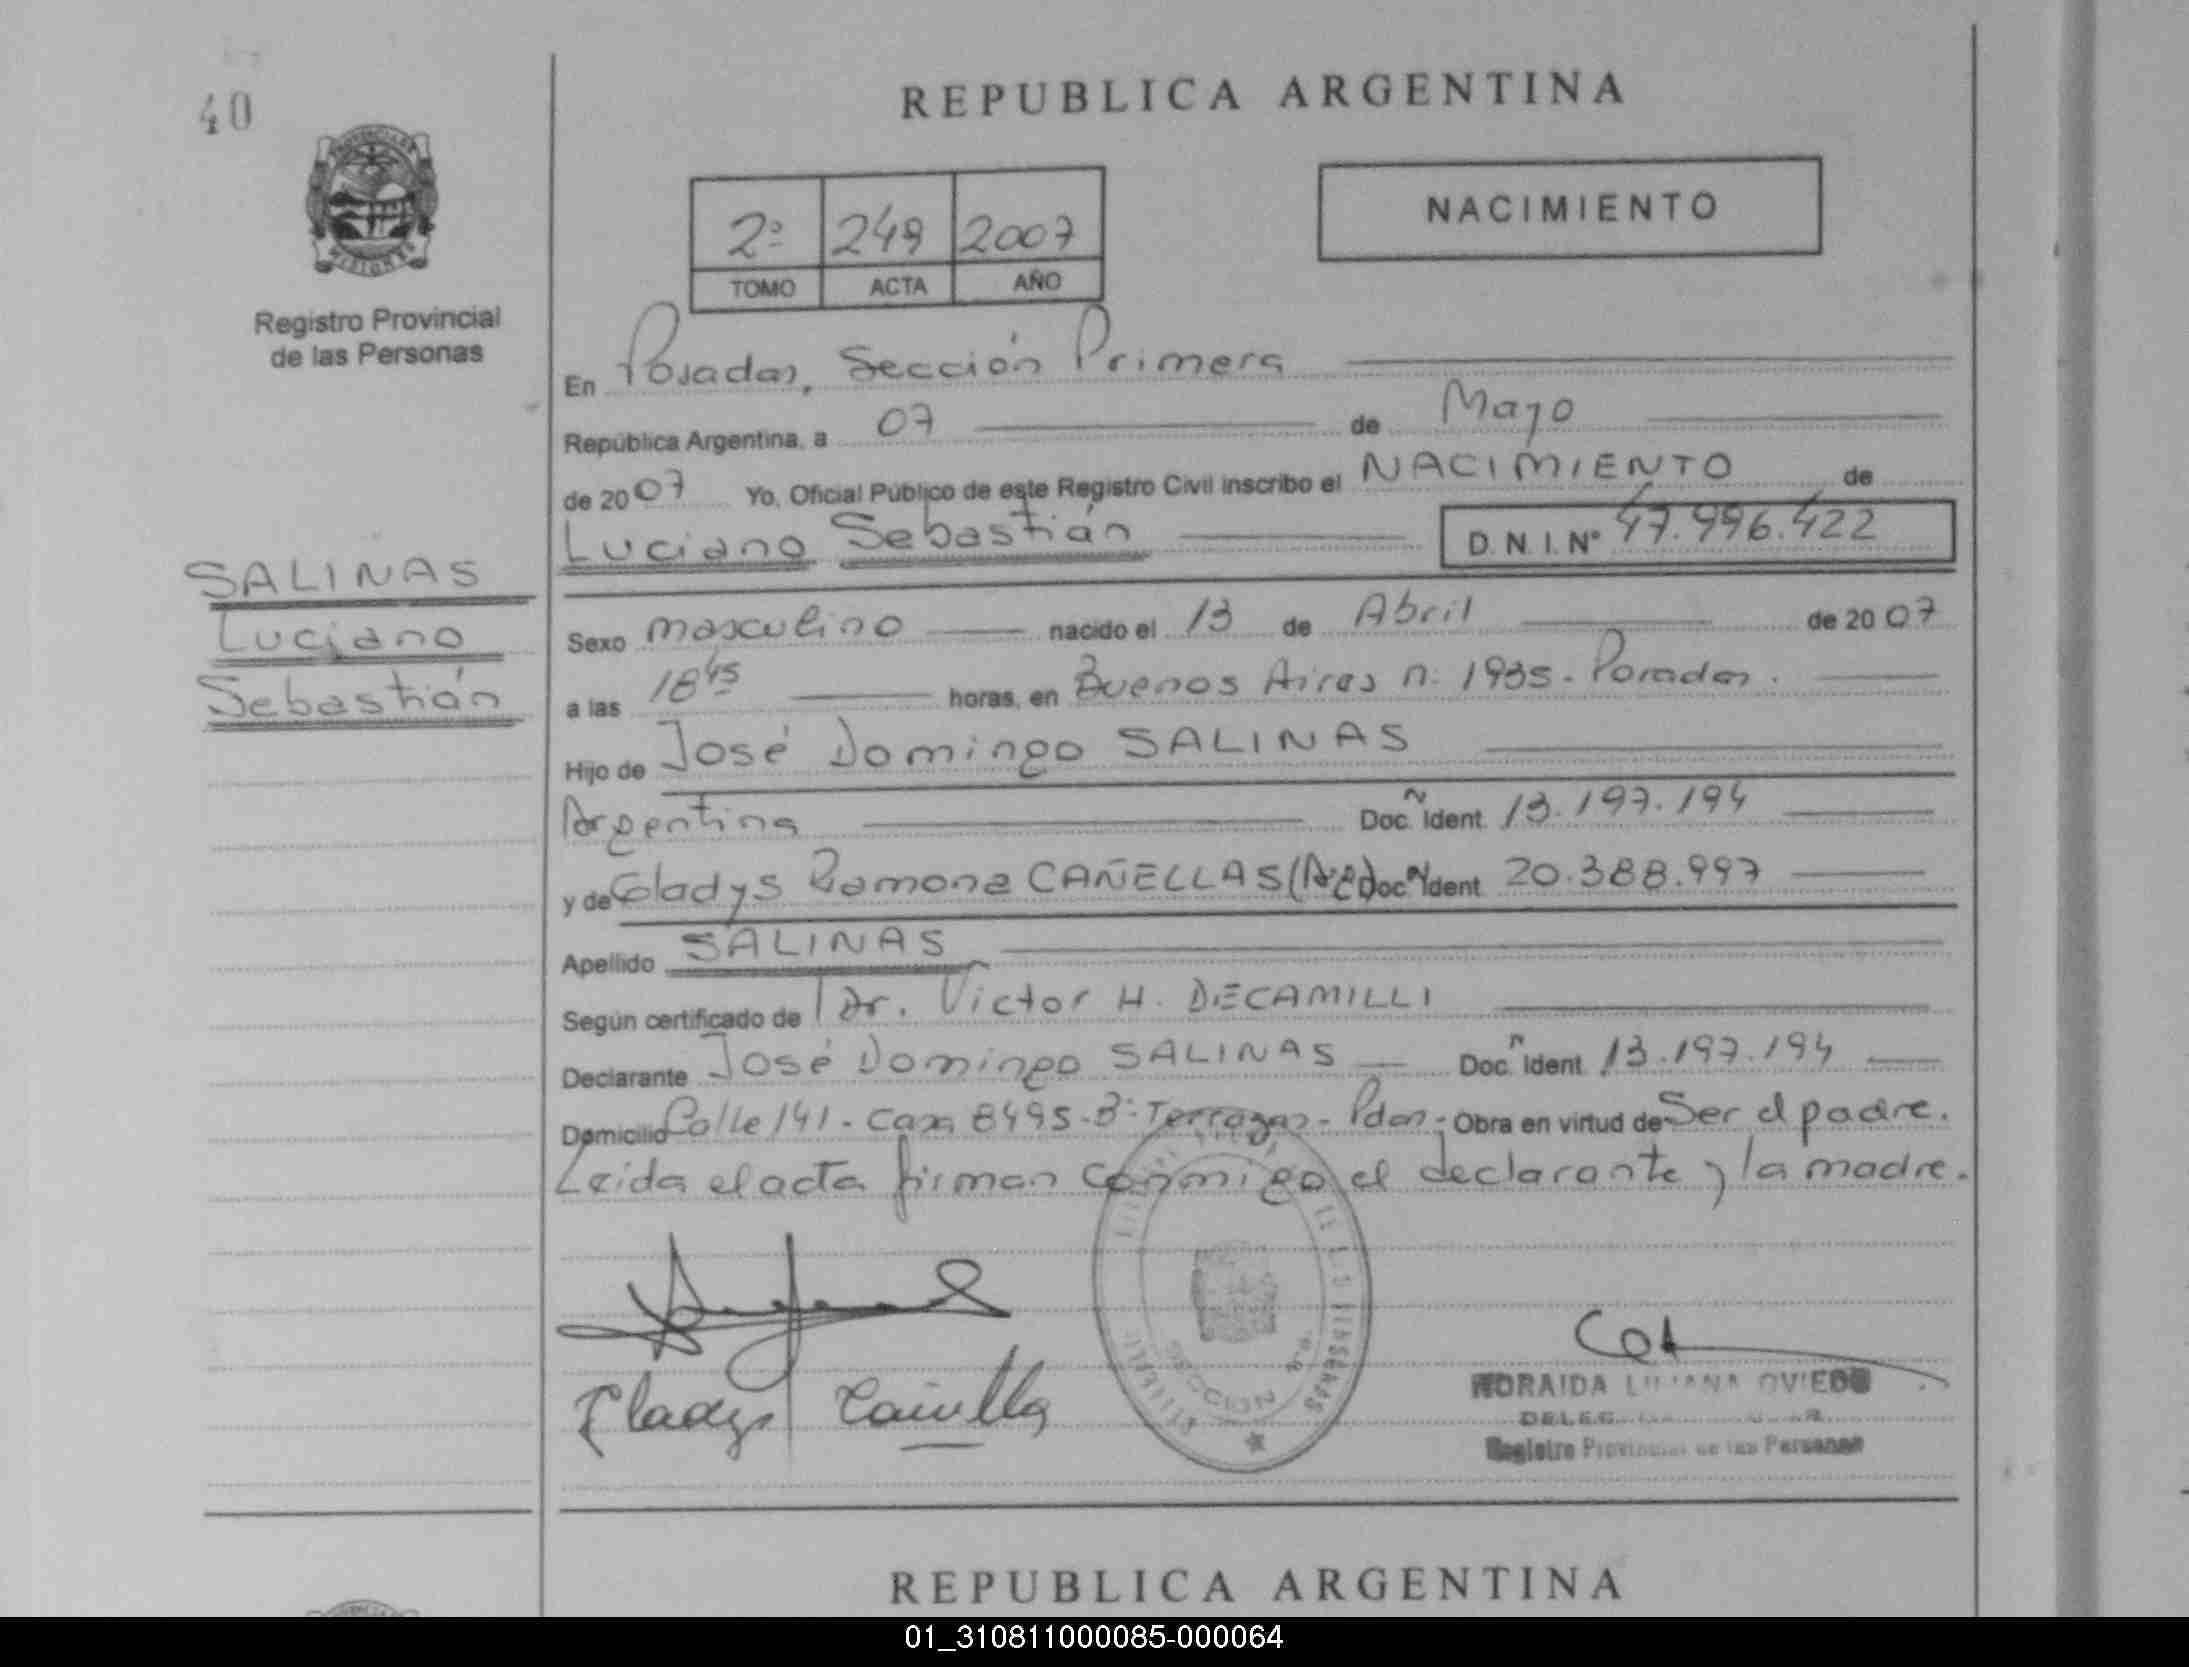 40
REPUBLICA ARGENTINA
PROVINCIA DE
MISIONES
Registro Provincial
de las Personas
2º 249 2007
TOMO ACTA AÑO
NACIMIENTO
En Posadas, Sección Primera
República Argentina, a 07 de Mayo
de 2007 Yo, Oficial Público de este Registro Civil inscribo el NACIMIENTO de
Luciano Sebastián D.N.I. Nº 47.996.422
SALINAS
Luciano
Sebastián
Sexo masculino nacido el 13 de Abril de 2007
a las 18 45 horas, en Buenos Aires n: 1935 - Posadas.
Hijo de José Domingo SALINAS
Argentina Doc. Ident. 13.197.194
y de Gladys Ramona CAÑELLAS (Arg) Doc. Ident. 20.388.997
Apellido SALINAS
Según certificado de Dr. Víctor H. DECAMILLI
Declarante José Domingo SALINAS Doc. Ident. 13.197.194
Domicilio Calle 141 - Casa 8495 - Bº Terrazas - Pdas - Obra en virtud de Ser el padre.
Leida el acta firman conmigo el declarante y la madre.
Gladys Cañellas
SECCION
NORAIDA LILIANA OVIEDO
Registro Provincial de las Personas
REPUBLICA ARGENTINA
01_310811000085-000064